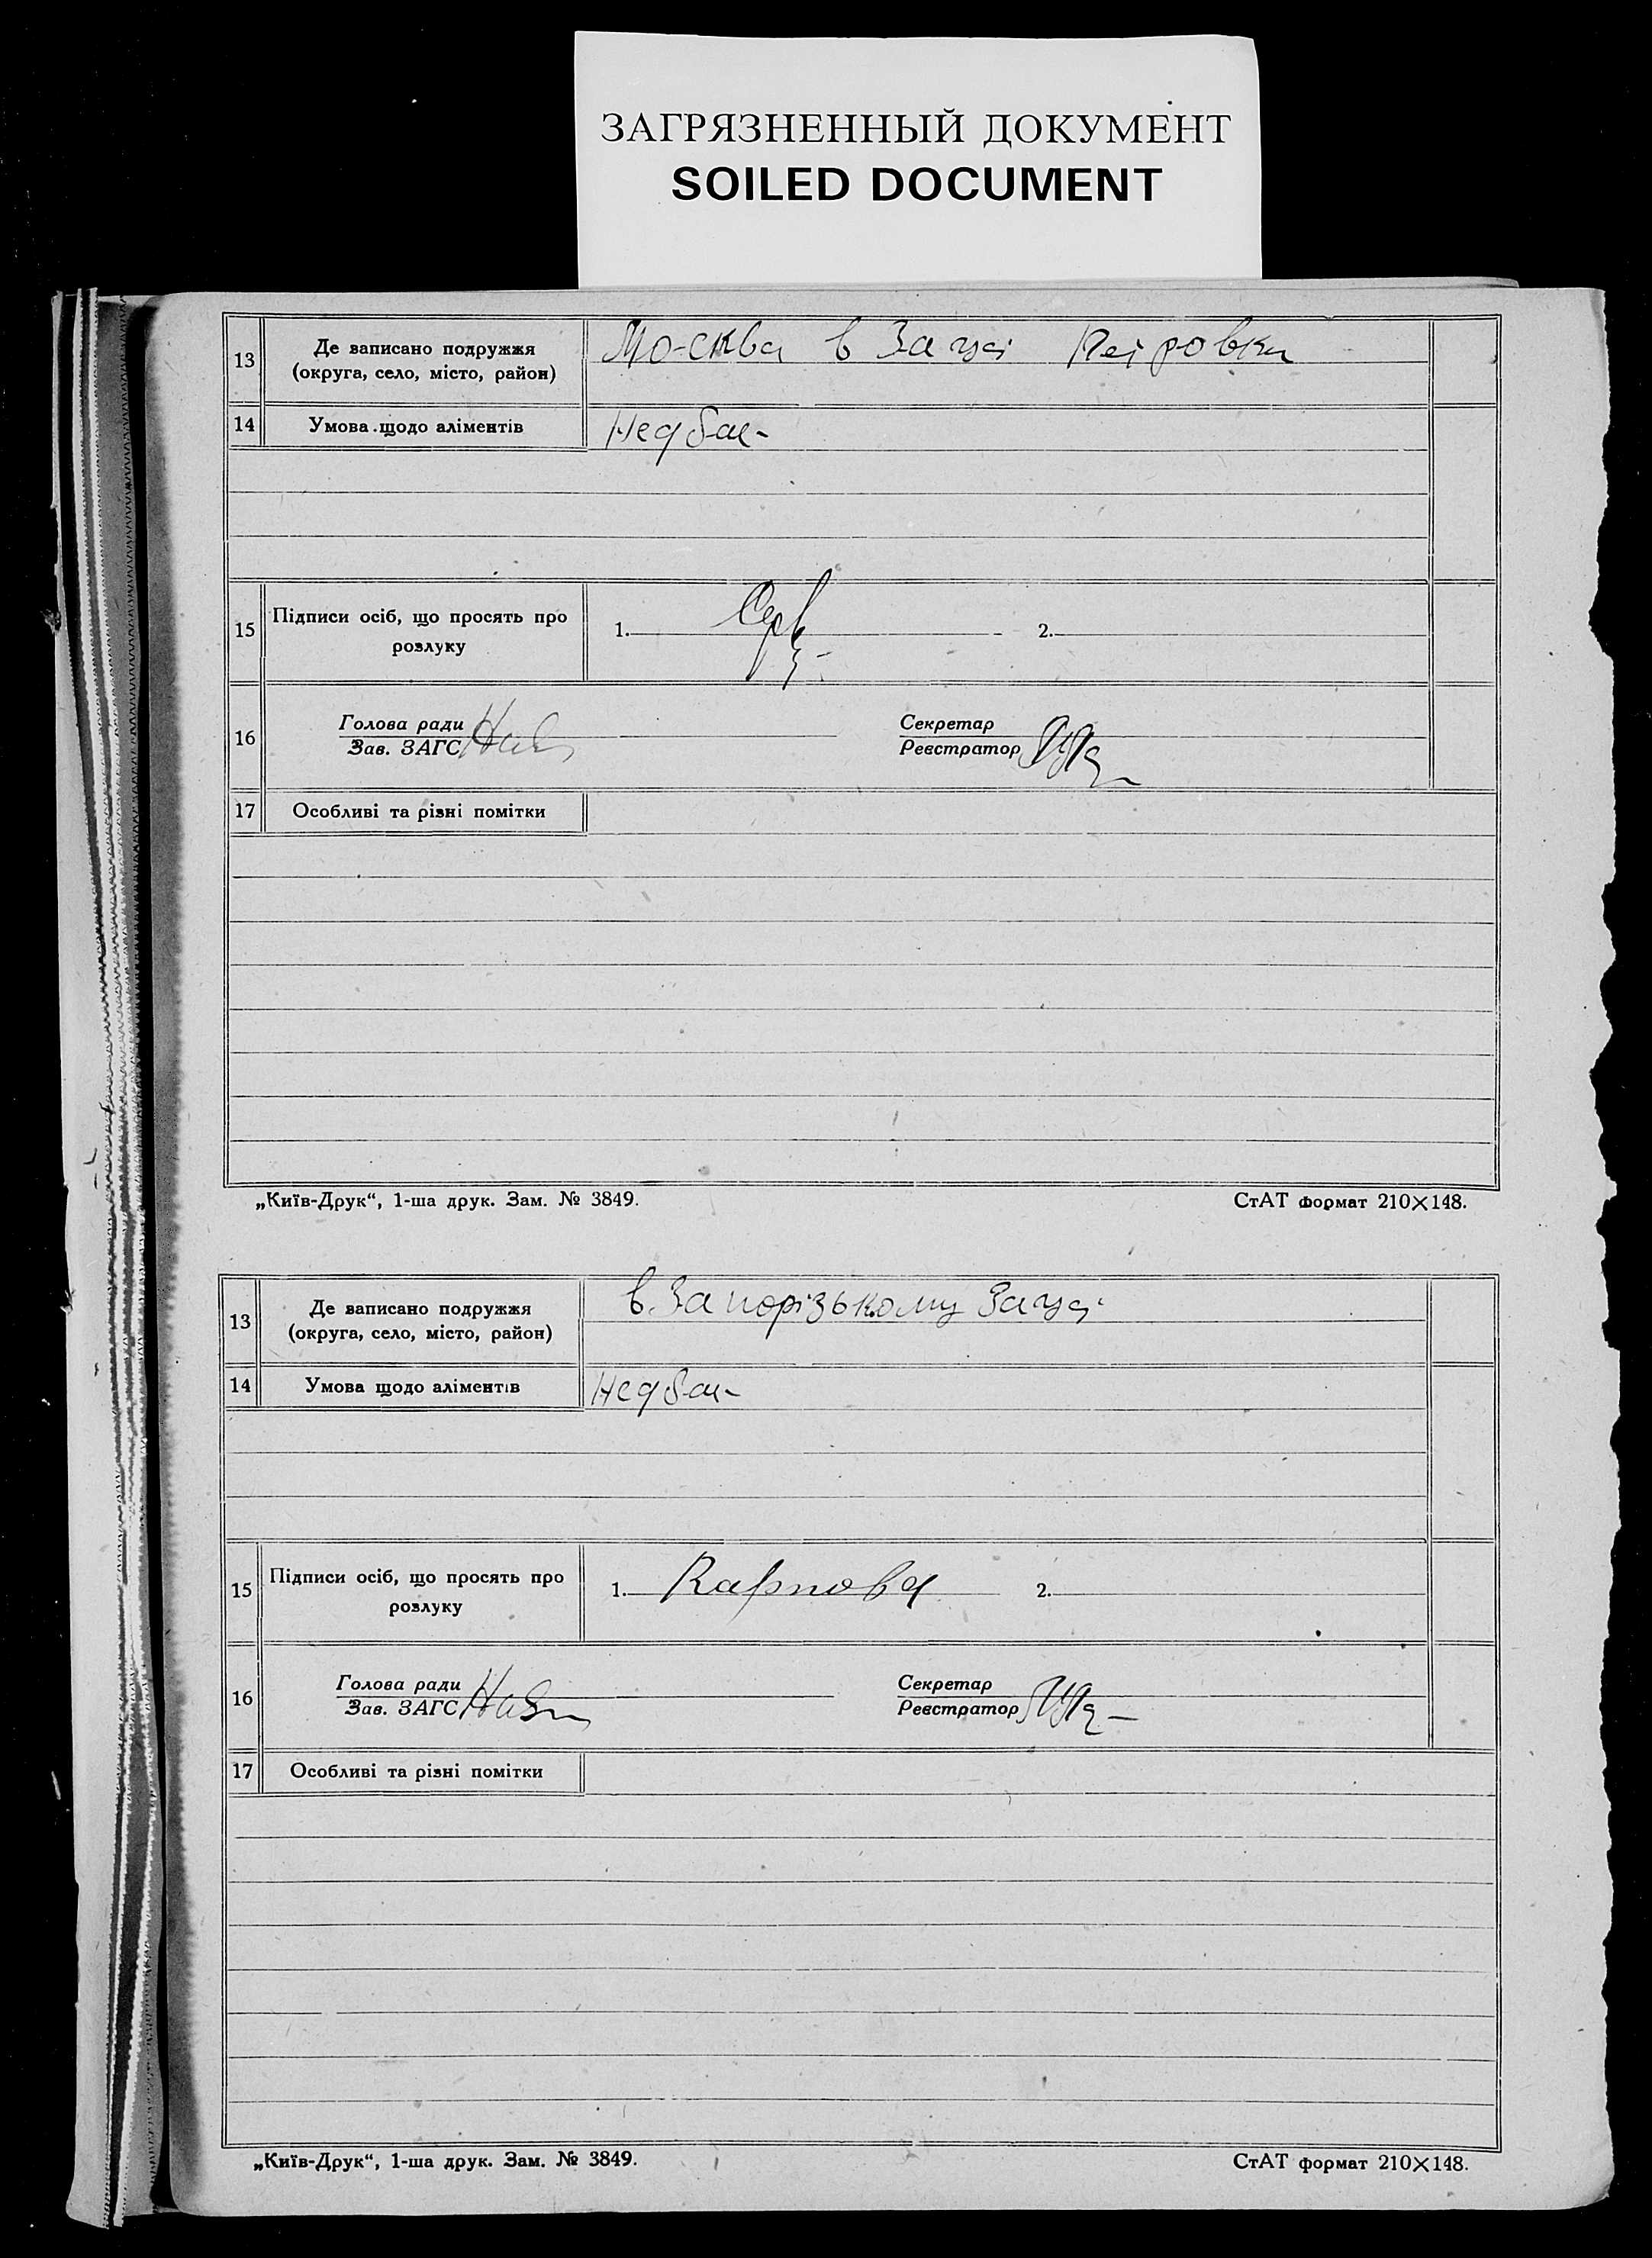 ЗАГРЯЗНЕННЫЙ ДОКУМЕНТ
SOILED DOCUMENT
13 Де записано подружжя (округа, село, місто, район) Москва в Загсі Петровка
14 Умова щодо аліментів
15 Підписи осіб, що просять про розлуку 1. 2.
16 Голова ради Секретар
Зав. ЗАГС Реєстратор
17 Особливі та різні помітки
„Київ-Друк“, 1-ша друк. Зам. № 3849. СтАТ формат 210×148.
13 Де записано подружжя (округа, село, місто, район) в Запорізькому Загсі
14 Умова щодо аліментів
15 Підписи осіб, що просять про розлуку 1. Карпова 2.
16 Голова ради Секретар
Зав. ЗАГС Реєстратор
17 Особливі та різні помітки
„Київ-Друк“, 1-ша друк. Зам. № 3849. СтАТ формат 210×148.